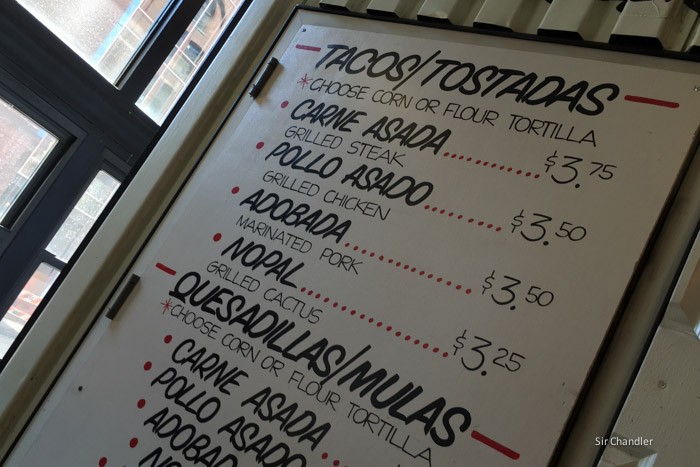 TACOS/TOSTADAS
*CHOOSE CORN OR FLOUR TORTILLA
CARNE ASADA........$3.75
GRILLED STEAK
POLLO ASADO........$3.50
GRILLED CHICKEN
ADOBADA........$3.50
MARINATED PORK
NOPAL........$3.25
GRILLED CACTUS
QUESADILLAS/MULAS
*CHOOSE CORN OR FLOUR TORTILLA
CARNE ASADA
POLLO ASADO
ADOBAD
Sir Chandler